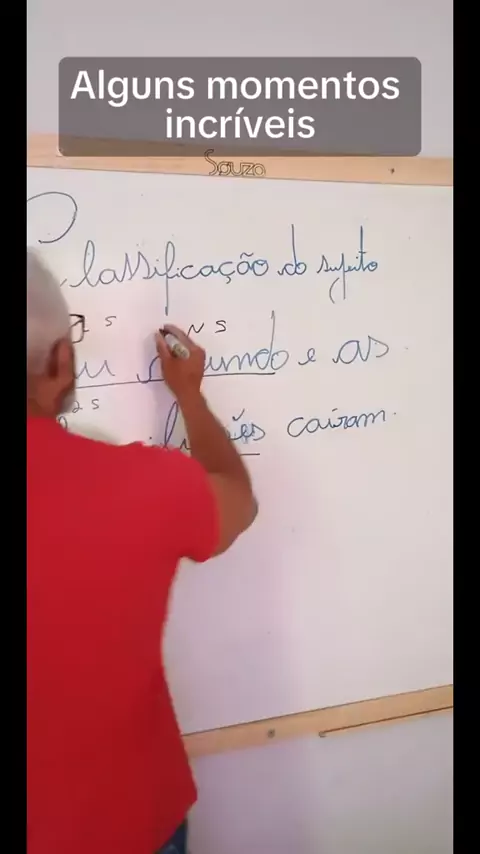 Alguns momentos
incríveis
Souza
Classificação do sujeito
s N S
mundo e as
2 s
caíram.